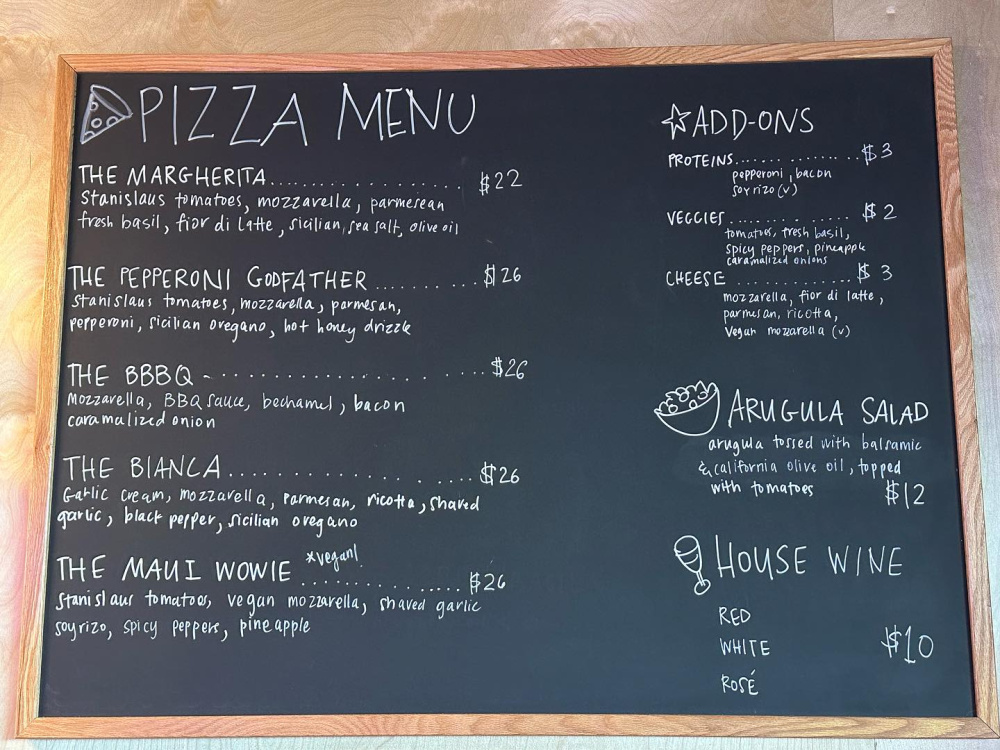 PIZZA MENU
THE MARGHERITA.................... $22
Stanislaus tomatoes, mozzarella, parmesean
fresh basil, fior di latte, sicilian sea salt, olive oil
THE PEPPERONI GODFATHER.......... $26
Stanislaus tomatoes, mozzarella, parmesan,
pepperoni, sicilian oregano, hot honey drizzle
THE BBBQ........................ $26
Mozzarella, BBQ sauce, bechamel, bacon
caramalized onion
THE BIANCA...................... $26
Garlic cream, mozzarella, parmesan, ricotta, shaved
garlic, black pepper, sicilian oregano
THE MAUI WOWIE *vegan! ............... $26
Stanislaus tomatoes, vegan mozzarella, shaved garlic
soyrizo, spicy peppers, pineapple
ADD-ONS
PROTEINS............... $3
pepperoni, bacon
soyrizo (v)
VEGGIES............... $2
tomatoes, fresh basil,
spicy peppers, pineapple
caramalized onions
CHEESE............... $3
mozzarella, fior di latte,
parmesan, ricotta,
vegan mozzarella (v)
ARUGULA SALAD
arugula tossed with balsamic
& california olive oil, topped
with tomatoes $12
HOUSE WINE
RED
WHITE $10
ROSÉ